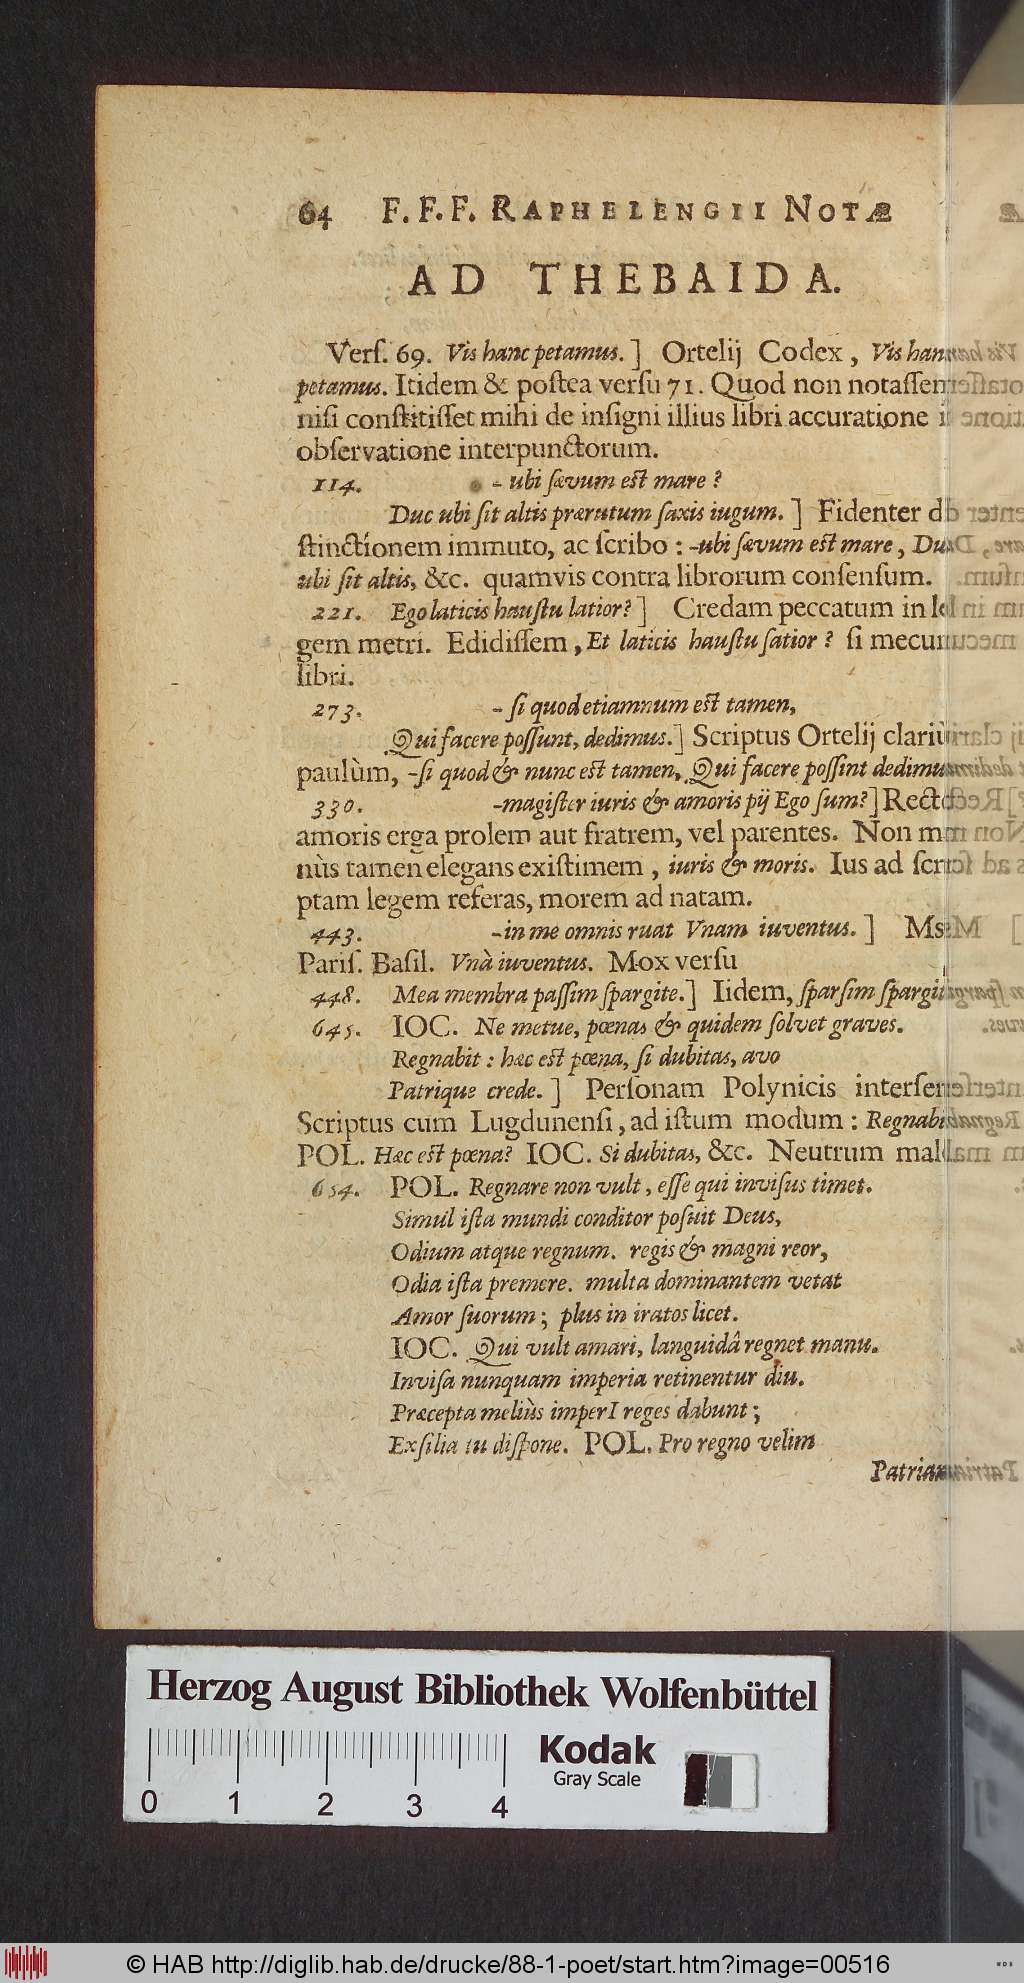 64 F. F. F. RAPHELENGII NOTÆ
AD THEBAIDA.
Verſ. 69. Vis hanc petamus.] Ortelij Codex, Vis han
petamus. Itidem & poſtea verſu 71. Quod non notaſſem
niſi conſtitiſſet mihi de inſigni illius libri accuratione
obſervatione interpunctorum.
114. - ubi ſævum eſt mare?
Duc ubi ſit altis prærutum ſaxis iugum.] Fidenter di
ſtinctionem immuto, ac ſcribo: -ubi ſævum eſt mare, Duc
ubi ſit altis, &c. quamvis contra librorum conſenſum.
221. Ego laticis hauſtu latior?] Credam peccatum in le
gem metri. Edidiſſem, Et laticis hauſtu ſatior? ſi mecum
libri.
273. - ſi quod etiamnum eſt tamen,
Qui facere poſſunt, dedimus.] Scriptus Ortelij clariùs
paulùm, -ſi quod & nunc eſt tamen, Qui facere poſſint dedimus
330. -magiſter iuris & amoris pij Ego ſum?] Rectè
amoris erga prolem aut fratrem, vel parentes. Non mi
nùs tamen elegans exiſtimem, iuris & moris. Ius ad ſcri
ptam legem referas, morem ad natam.
443. -in me omnis ruat Vnam iuventus.] Ms.
Pariſ. Baſil. Vnà iuventus. Mox verſu
448. Mea membra paſſim ſpargite.] Iidem, ſparſim ſpargite
645. IOC. Ne metue, pœnas & quidem ſolvet graves.
Regnabit: hæc eſt pœna, ſi dubitas, avo
Patrique crede.] Perſonam Polynicis interſe
Scriptus cum Lugdunenſi, ad iſtum modum: Regnabit
POL. Hæc eſt pœna? IOC. Si dubitas, &c. Neutrum mal
654. POL. Regnare non vult, eſſe qui inviſus timet.
Simul iſta mundi conditor poſuit Deus,
Odium atque regnum. regis & magni reor,
Odia iſta premere. multa dominantem vetat
Amor ſuorum; plus in iratos licet.
IOC. Qui vult amari, languidâ regnet manu.
Inviſa nunquam imperia retinentur diu.
Præcepta meliùs imperI reges dabunt;
Exſilia tu diſpone. POL. Pro regno velim
Patriam
Herzog August Bibliothek Wolfenbüttel
0 1 2 3 4
Kodak
Gray Scale
© HAB http://diglib.hab.de/drucke/88-1-poet/start.htm?image=00516